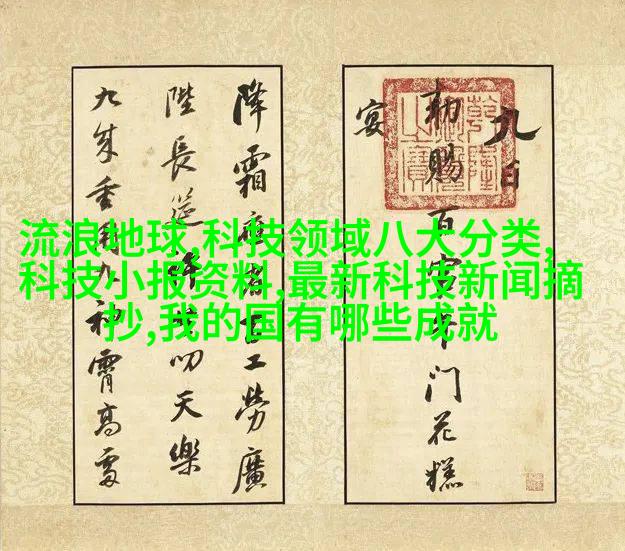 流浪地球,科技领域八大分类,
科技小报资料,最新科技新闻摘
抄,我的国有哪些成就
九日
勅賜百官午門花糕
宴
降霜百工勞廣
陛長筵叨天樂
九成重九神霄高